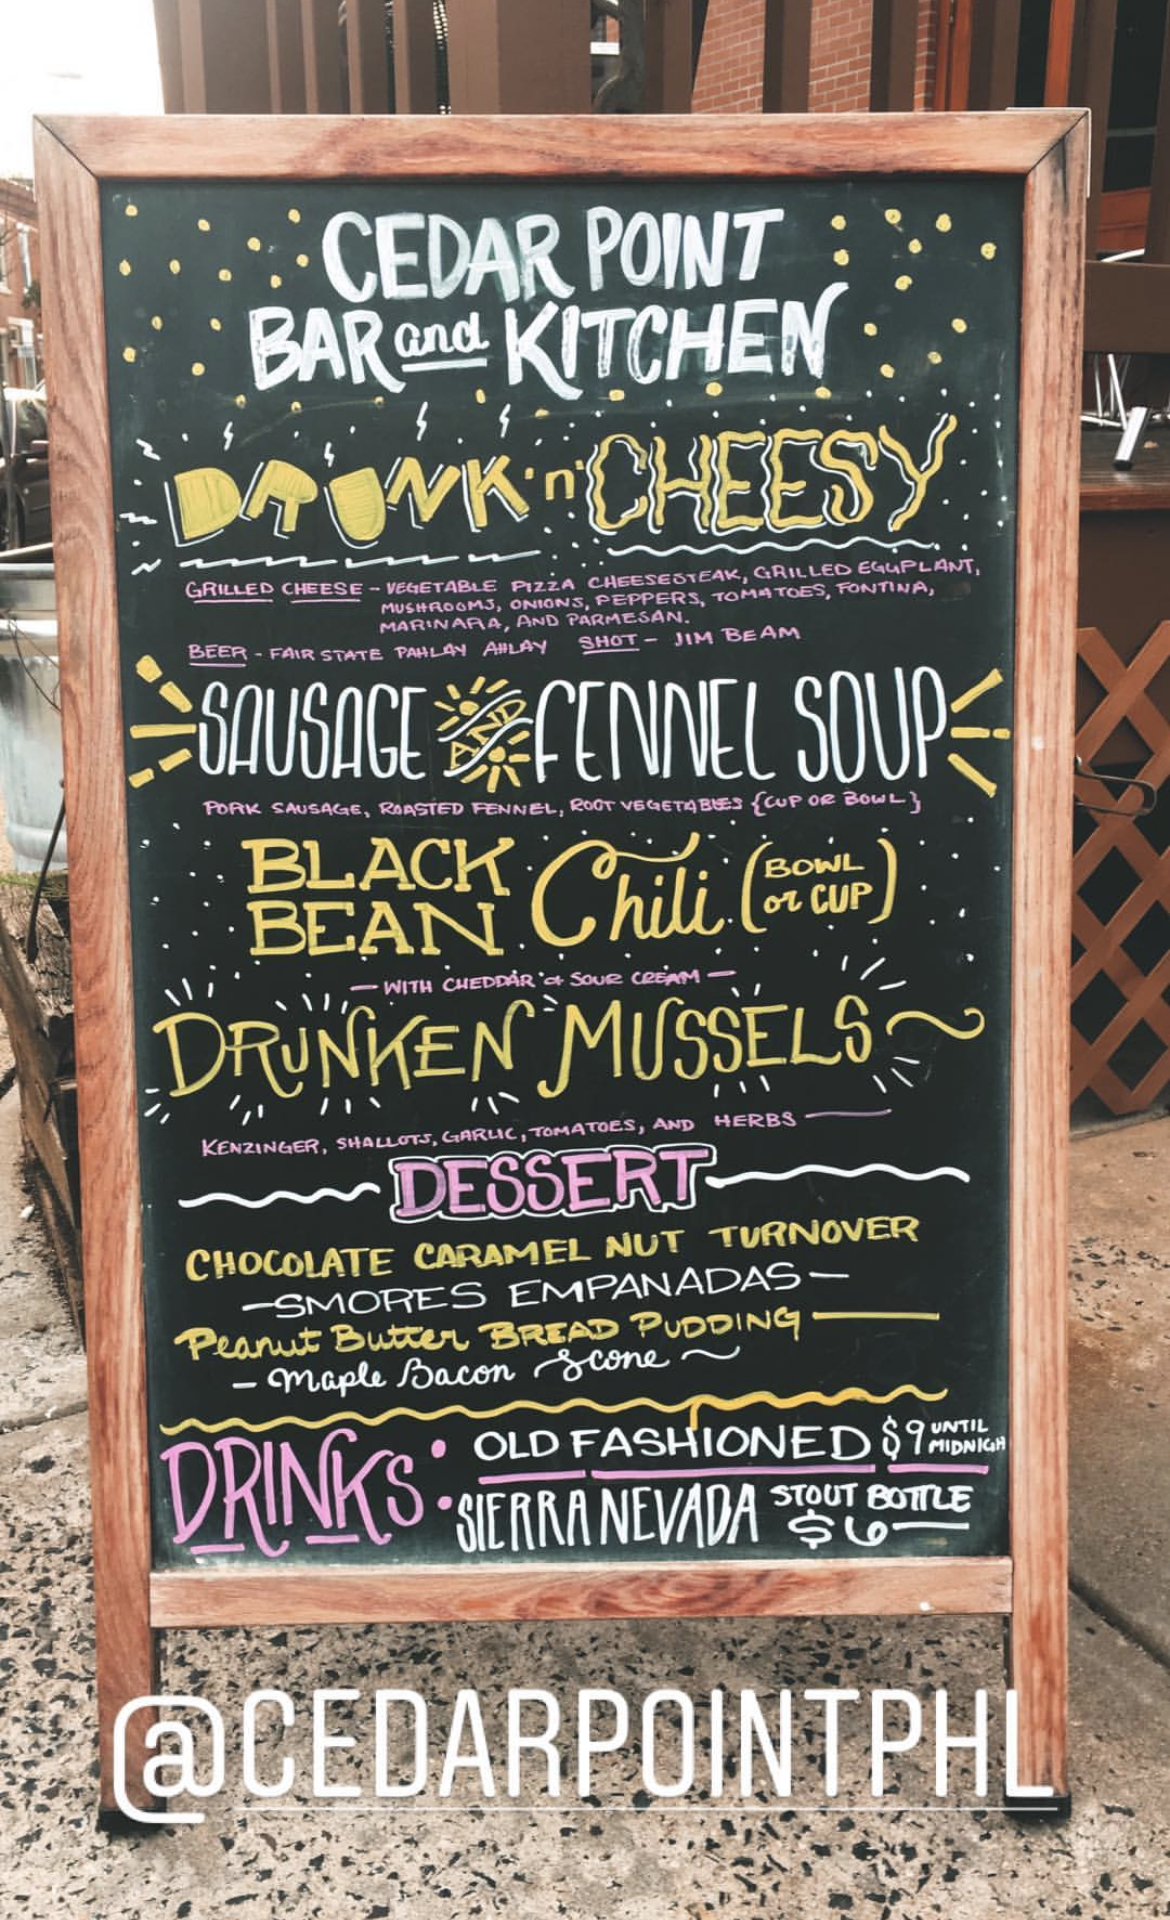 CEDAR POINT
BAR and KITCHEN
DRUNK 'n' CHEESY
GRILLED CHEESE - VEGETABLE PIZZA CHEESESTEAK, GRILLED EGGPLANT,
MUSHROOMS, ONIONS, PEPPERS, TOMATOES, FONTINA,
MARINARA, AND PARMESAN.
BEER - FAIR STATE PAHLAY AHLAY SHOT - JIM BEAM
SAUSAGE AND FENNEL SOUP
PORK SAUSAGE, ROASTED FENNEL, ROOT VEGETABLES {CUP OR BOWL}
BLACK BEAN Chili (BOWL or CUP)
- WITH CHEDDAR & SOUR CREAM -
DRUNKEN MUSSELS
KENZINGER, SHALLOTS, GARLIC, TOMATOES, AND HERBS
DESSERT
CHOCOLATE CARAMEL NUT TURNOVER
- SMORES EMPANADAS -
Peanut Butter BREAD PUDDING
- Maple Bacon Scone ~
DRINKS: OLD FASHIONED $9 UNTIL MIDNIGH
SIERRA NEVADA STOUT BOTTLE $6
@CEDARPOINTPHL